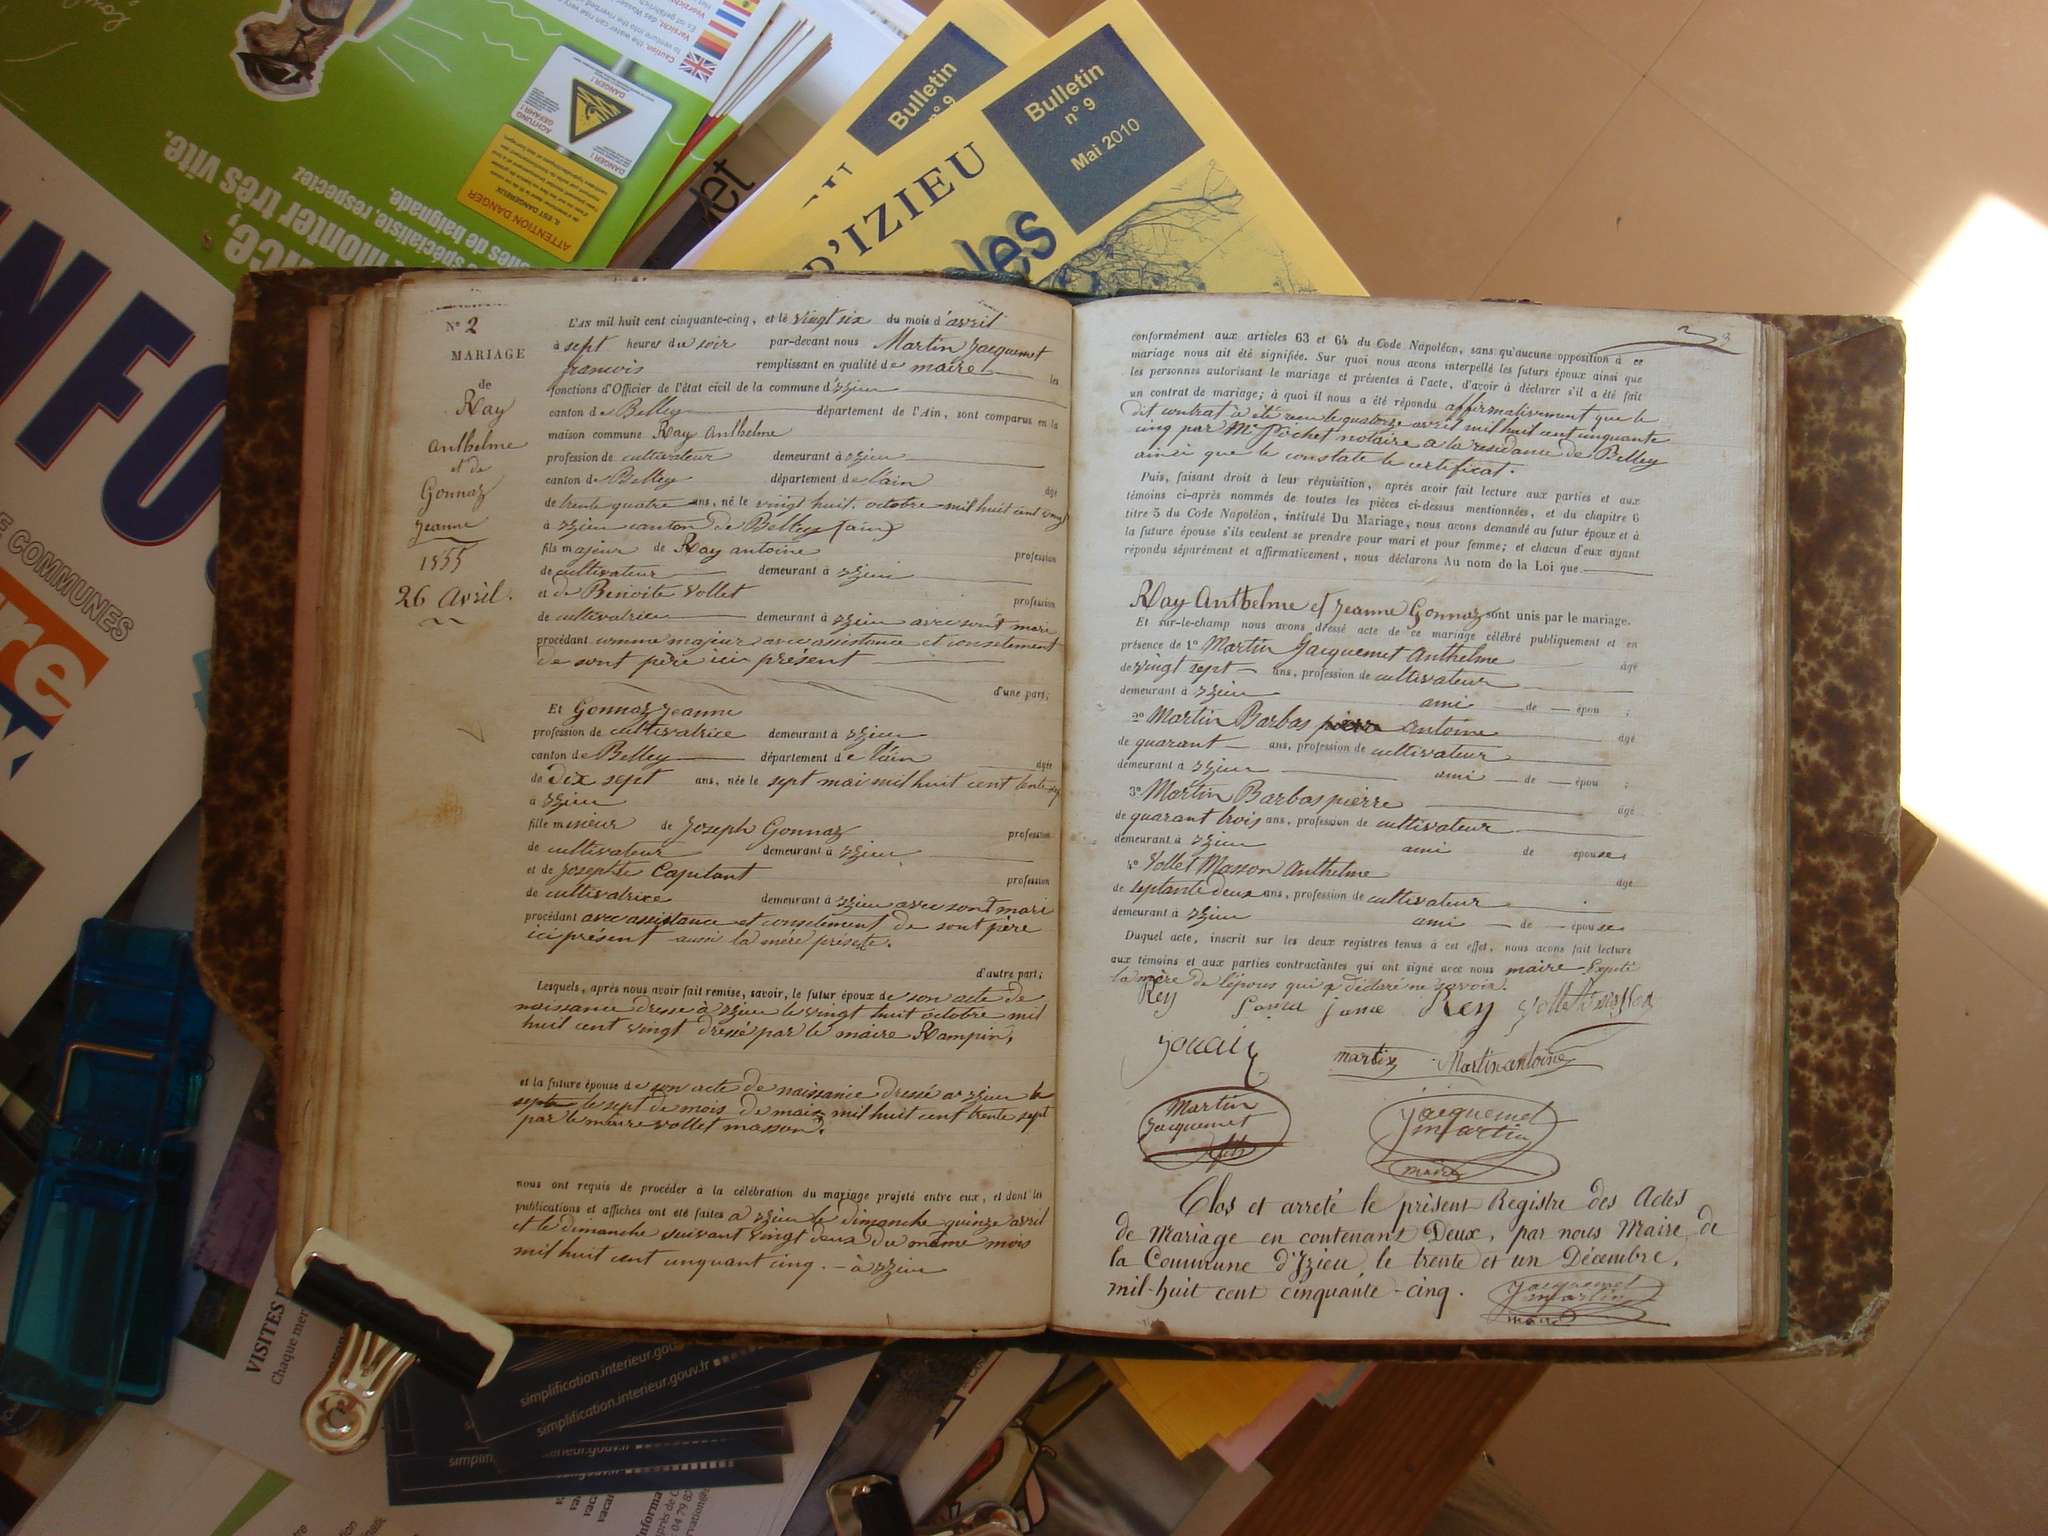 Bulletin
n° 9
Bulletin
n° 9
Mai 2010
D'IZIEU
les
ATTENTION DANGER
DANGER !
ACHTUNG
GEFAHR !
monter très vite.
spécialiste, respectez
de baignade.
INFO
E COMMUNES
re
N° 2
MARIAGE
de
Ray
Anthelme
et de
Gonnaz
Jeanne
1855
26 Avril.
L'AN mil huit cent cinquante-cinq, et le vingt six du mois d'avril
à sept heures du soir par-devant nous Martin Jacquemet
francois remplissant en qualité de maire les
fonctions d'Officier de l'état civil de la commune d'izieu
canton de Belley département de l'Ain, sont comparus en la
maison commune Ray Anthelme
profession de cultivateur demeurant à izieu
canton de Belley département de l'ain âgé
de trente quatre ans, né le vingt huit octobre mil huit cent vingt
à izieu canton de Belley (ain)
fils majeur de Ray antoine profession
de cultivateur demeurant à izieu
et de Benoite vollet profession
de cultivatrice demeurant à izieu avec sont mari
procédant comme majeur avec assistance et consetement
de sont père ici présent
d'une part;
Et Gonnaz jeanne
profession de cultivatrice demeurant à izieu
canton de Belley département de l'ain âgée
de dix sept ans, née le sept mai mil huit cent trente sept
à izieu
fille mineur de joseph Gonnaz profession
de cultivateur demeurant à izieu
et de josephte Capitant profession
de cultivatrice demeurant à izieu avec sont mari
procédant avec assistance et consetement de sont père
ici présent aussi la mére présente.
d'autre part;
Lesquels, après nous avoir fait remise, savoir, le futur époux de son acte de
naissance dressé à izieu le vingt huit octobre mil
huit cent vingt dressé par le maire Rampin,
et la future épouse de son acte de naissance dressé a izieu le
septe le sept de mois de mai mil huit cent trente sept
par le maire vollet masson.
nous ont requis de procéder à la célébration du mariage projeté entre eux, et dont les
publications et affiches ont été faites a izieu le dimanche quinze avril
et le dimanche suivant vingt deux du même mois
mil huit cent cinquant cinq. - à izieu
conformément aux articles 63 et 64 du Code Napoléon, sans qu'aucune opposition à ce
mariage nous ait été signifiée. Sur quoi nous avons interpellé les futurs époux ainsi que
les personnes autorisant le mariage et présentes à l'acte, d'avoir à déclarer s'il a été fait
un contrat de mariage; à quoi il nous a été répondu affirmativement que le
dit contrat à été recu le quatorze avril mil huit cent cinquante
cinq par Me Pochet notaire a la residance de Belley
ainsi que le constate le certificat.
Puis, faisant droit à leur réquisition, après avoir fait lecture aux parties et aux
témoins ci-après nommés de toutes les pièces ci-dessus mentionnées, et du chapitre 6
titre 5 du Code Napoléon, intitulé Du Mariage, nous avons demandé au futur époux et à
la future épouse s'ils veulent se prendre pour mari et pour femme; et chacun d'eux ayant
répondu séparément et affirmativement, nous déclarons Au nom de la Loi que
Ray Anthelme et jeanne Gonnaz sont unis par le mariage.
Et sur-le-champ nous avons dressé acte de ce mariage célébré publiquement et en
présence de 1° Martin Jacquemet Anthelme âgé
de vingt sept ans, profession de cultivateur
demeurant à izieu ami de épou ;
2° Martin Barbas pierre antoine âgé
de quarant ans, profession de cultivateur
demeurant à izieu ami de épou ;
3° Martin Barbas pierre âgé
de quarant trois ans, profession de cultivateur
demeurant à izieu ami de épouse;
4° Vollet Masson Anthelme âgé
de septante deux ans, profession de cultivateur
demeurant à izieu ami de épouse
Duquel acte, inscrit sur les deux registres tenus à cet effet, nous avons fait lecture
aux témoins et aux parties contractantes qui ont signé avec nous maire Expté
la mère de l'épous qui a déclaré ne savoir.
Rey Rey
martin Martin antoine
Martin
Jacquemet
fils
jacquemet
martin
maire
Clos et arreté le présent Registre des Actes
de Mariage en contenant Deux, par nous Maire de
la Commune d'Izieu, le trente et un Décembre,
mil-huit cent cinquante-cinq.
jacquemet
martin
maire
VISITES
simplification.interieur.gouv.fr
simplification.interieur.gouv.fr